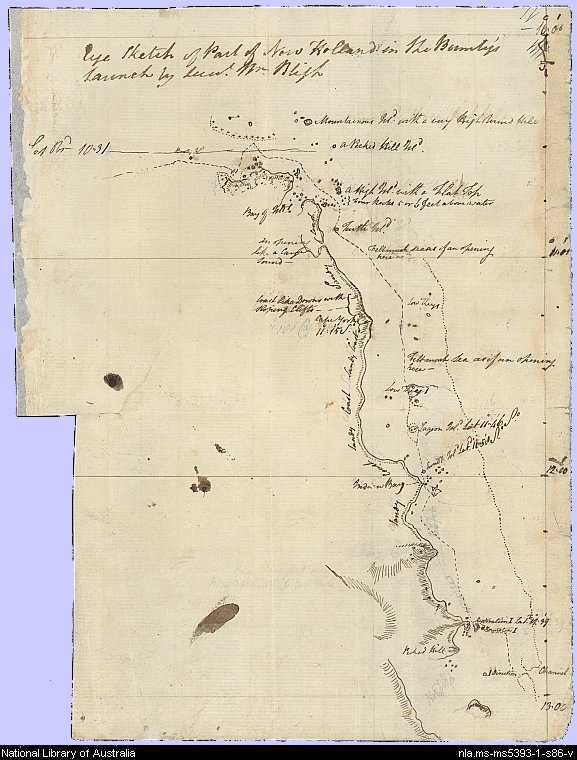 Eye Sketch of Part of New Holland in the Bounty's
Launch by Lieut. Wm. Bligh
10.00
Mountainous Isd. with a very High Round Hill
a Peeked Hill Isd.
10.31
a High Isd. with a Flat Top
Four Rocks 5 or 6 feet above water
Bay of Islds
Turtle Isd
an opening
like a Large
Sound
Tellemuch seas of an opening
here
11.00
Sandy
Coast
Coast like Downs with
Sloping Clifts
Cape York
Low Keys
Sandy Coast Sandy
Sea as if an opening
here
Low Keys
Lagoon Isl. Lat 11.46 So
Small Isl Lat
12.00
Fair
Bay
Sandy
Restoration I Lat 12.39
Peked Hill
Direction
Channel
13.00
National Library of Australia
nla.ms-ms5393-1-s86-v